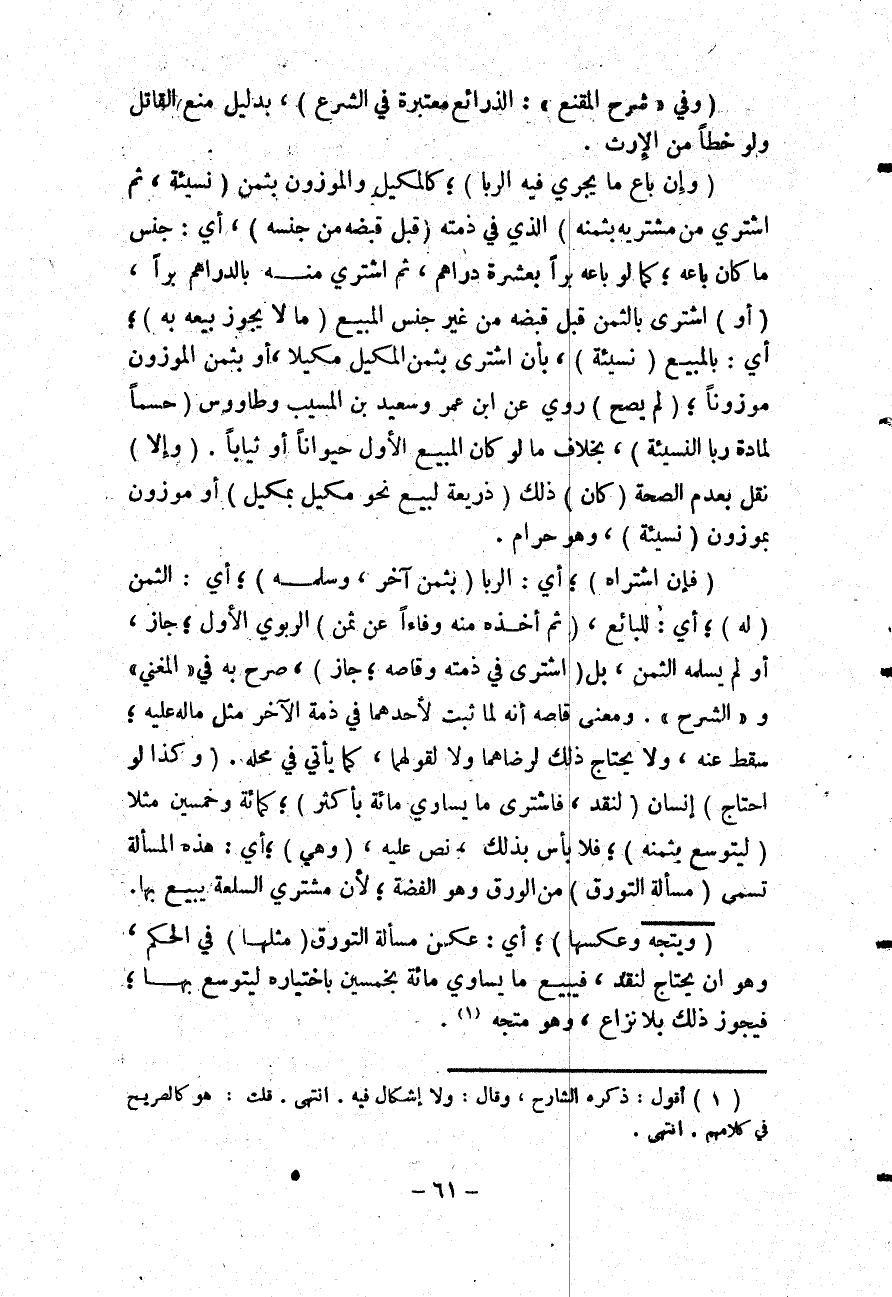 ( وفي « شرح المقنع » : الذرائع معتبرة في الشرع ) ، بدليل منع القاتل
ولو خطأً من الإرث .
( وإن باع ما يجري فيه الربا ) ؛ كالمكيل والموزون بثمن ( نسيئة ، ثم
اشتري من مشتريه بثمنه ) الذي في ذمته ( قبل قبضه من جنسه ) ، أي : جنس
ما كان باعه ؛ كما لو باعه براً بعشرة دراهم ، ثم اشتري منـــه بالدراهم براً ،
( أو ) اشترى بالثمن قبل قبضه من غير جنس المبيـع ( ما لا يجوز بيعه به ) ؛
أي : بالمبيـع ( نسيئة ) ، بأن اشترى بثمن المكيل مكيلا ، أو بثمن الموزون
موزوناً ؛ ( لم يصح ) روي عن ابن عمر وسعيد بن المسيب وطاووس ( حسماً
لمادة ربا النسيئة ) ، بخلاف ما لو كان المبيـع الأول حيواناً أو ثياباً . ( وإلا )
نقل بعدم الصحة ( كان ) ذلك ( ذريعة لبيـع نحو مكيل بمكيل ) أو موزون
بموزون ( نسيئة ) ، وهو حرام .
( فإن اشتراه ) ؛ أي : الربا ( بثمن آخر ، وسلمـــه ) ؛ أي : الثمن
( له ) ؛ أي : للبائع ، ( ثم أخـذه منه وفاءاً عن ثمن ) الربوي الأول ؛ جاز ،
أو لم يسلمه الثمن ، بل ( اشترى في ذمته وقاصه ؛ جاز ) ، صرح به في « المغني »
و « الشرح » . ومعنى قاصه أنه لما ثبت لأحدهما في ذمة الآخر مثل ماله عليه ؛
سقط عنه ، ولا يحتاج ذلك لرضاهما ولا لقولهما ، كما يأتي في محله . ( وكذا لو
احتاج ) إنسان ( لنقد ، فاشترى ما يساوي مائة بأكثر ) ؛ كمائة وخمسين مثلا
( ليتوسع بثمنه ) ؛ فلا بأس بذلك ، نص عليه ، ( وهي ) ؛ أي : هذه المسألة
تسمى ( مسألة التورق ) من الورق وهو الفضة ؛ لأن مشتري السلعة يبيـع بها .
( ويتجه وعكسها ) ؛ أي : عكس مسألة التورق ( مثلهـا ) في الحكم ،
وهو ان يحتاج لنقد ، فيبيـع ما يساوي مائة بخمسين باختياره ليتوسع بهـــا ؛
فيجوز ذلك بلا نزاع ، وهو متجه (١) .
( ١ ) أقول : ذكره الشارح ، وقال : ولا إشكال فيه . انتهى . قلت : هو كالصريح
في كلامهم . انتهى .
– ٦١ –